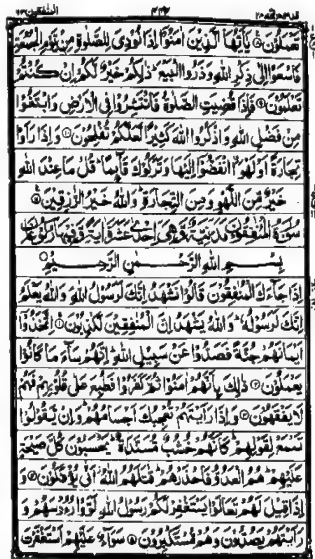 تَعْمَلُوْنَ يٰۤاَيُّهَا الَّذِيْنَ اٰمَنُوْۤا اِذَا نُوْدِیَ لِلصَّلٰوةِ مِنْ يَّوْمِ الْجُمُعَةِ
فَاسْعَوْا اِلٰى ذِكْرِ اللّٰهِ وَذَرُوا الْبَيْعَ ذٰلِكُمْ خَيْرٌ لَّكُمْ اِنْ كُنْتُمْ
تَعْلَمُوْنَ فَاِذَا قُضِيَتِ الصَّلٰوةُ فَانْتَشِرُوْا فِى الْاَرْضِ وَابْتَغُوْا
مِنْ فَضْلِ اللّٰهِ وَاذْكُرُوا اللّٰهَ كَثِيْرًا لَّعَلَّكُمْ تُفْلِحُوْنَ وَاِذَا رَاَوْا
تِجَارَةً اَوْ لَهْوَا ۨانْفَضُّوْۤا اِلَيْهَا وَتَرَكُوْكَ قَآئِمًا قُلْ مَا عِنْدَ اللّٰهِ
خَيْرٌ مِّنَ اللَّهْوِ وَمِنَ التِّجَارَةِ وَاللّٰهُ خَيْرُ الرّٰزِقِيْنَ
سُوْرَةُ الْمُنٰفِقُوْنَ مَدَنِيَّةٌ وَّهِىَ اِحْدٰى عَشْرَةَ اٰيَةً
بِسْمِ اللّٰهِ الرَّحْمٰنِ الرَّحِيْمِ
اِذَا جَآءَكَ الْمُنٰفِقُوْنَ قَالُوْا نَشْهَدُ اِنَّكَ لَرَسُوْلُ اللّٰهِ وَاللّٰهُ يَعْلَمُ
اِنَّكَ لَرَسُوْلُهٗ وَاللّٰهُ يَشْهَدُ اِنَّ الْمُنٰفِقِيْنَ لَكٰذِبُوْنَ اِتَّخَذُوْۤا
اَيْمَانَهُمْ جُنَّةً فَصَدُّوْا عَنْ سَبِيْلِ اللّٰهِ اِنَّهُمْ سَآءَ مَا كَانُوْا
يَعْمَلُوْنَ ذٰلِكَ بِاَنَّهُمْ اٰمَنُوْا ثُمَّ كَفَرُوْا فَطُبِعَ عَلٰى قُلُوْبِهِمْ فَهُمْ
لَا يَفْقَهُوْنَ وَاِذَا رَاَيْتَهُمْ تُعْجِبُكَ اَجْسَامُهُمْ وَاِنْ يَّقُوْلُوْا
تَسْمَعْ لِقَوْلِهِمْ كَاَنَّهُمْ خُشُبٌ مُّسَنَّدَةٌ يَحْسَبُوْنَ كُلَّ صَيْحَةٍ
عَلَيْهِمْ هُمُ الْعَدُوُّ فَاحْذَرْهُمْ قٰتَلَهُمُ اللّٰهُ اَنّٰى يُؤْفَكُوْنَ وَ
اِذَا قِيْلَ لَهُمْ تَعَالَوْا يَسْتَغْفِرْ لَكُمْ رَسُوْلُ اللّٰهِ لَوَّوْا رُءُوْسَهُمْ وَ
رَاَيْتَهُمْ يَصُدُّوْنَ وَهُمْ مُّسْتَكْبِرُوْنَ سَوَآءٌ عَلَيْهِمْ اَسْتَغْفَرْتَ